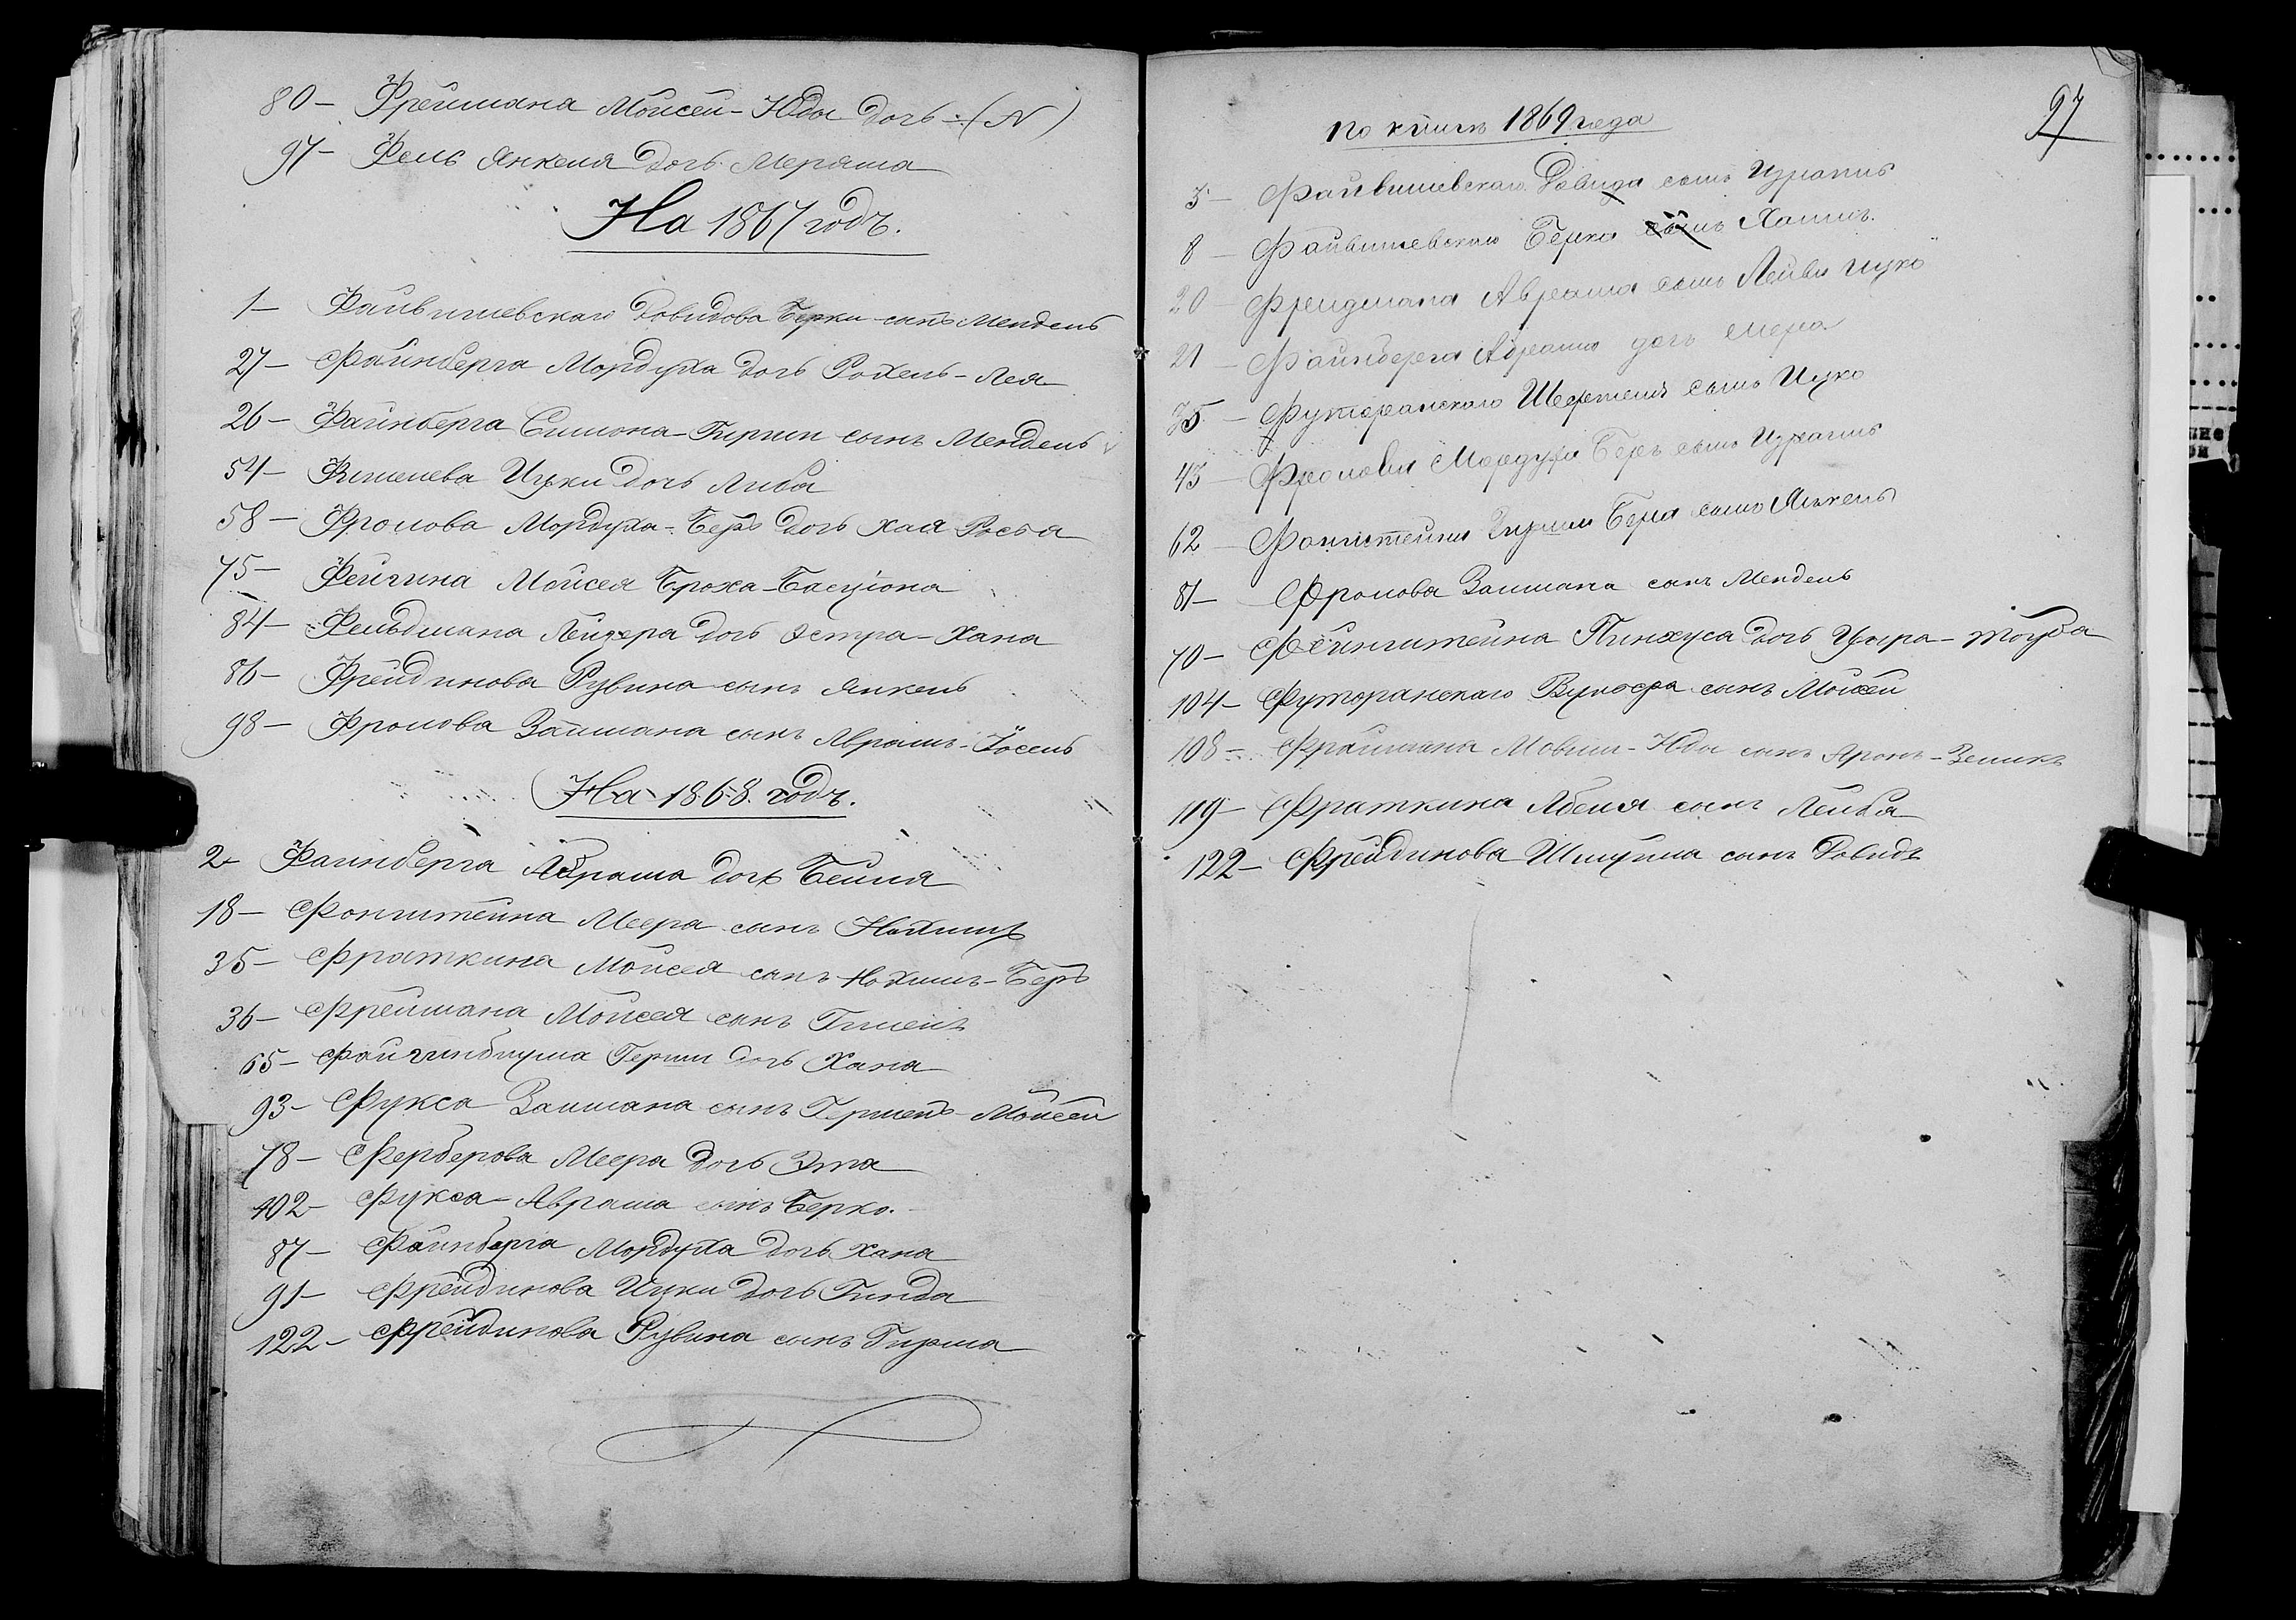 80 – Фреймана Мойсей-Юды дочь – (N)
97 – Фель Янкеля дочь Меряша
На 1867 годъ.
1 – Файвишевскаго Довидова Берки сынъ Мендель
27 – Файнберга Мордуха дочь Рохель-Лея
26 – Файнберга Симона-Гирши сынъ Мендель
54 – Фишелева Ицки дочь Либа
58 – Фролова Мордуха-Беръ дочь Хая Росья
75 – Фейгина Мойсея Броха-Басціона
84 – Фельдмана Лейзера дочь Эстра-Хана
86 – Фрейдинова Рувина сынъ Янкель
98 – Фролова Залмана сынъ Абрамъ-Іосель
На 1868 годъ.
2 – Файнберга Абрама дочь Бейля
18 – Фонштейна Меера сынъ Нохимъ
35 – Фраткина Мойсея сынъ Нохимъ-Беръ
36 – Фреймана Мойсея сынъ Гилель
65 – Файгинблума Герши дочь Хана
93 – Фукса Залмана сынъ Гершень-Мойсей
78 – Ферберова Меера дочь Эта
102 – Фукса Абрама сынъ Берко.
87 – Файнберга Мордуха дочь Хана
91 – Фрейдинова Ицки дочь Гинда
122 – Фрейдинова Рувина сынъ Гирша
97
по книгѣ 1869 года
3 – Файвишевскаго Довида сынъ Израиль
8 – Файвишевскаго Берка сынъ Хаимъ.
20 – Фрейдмана Абрама сынъ Лейви Ицко
21 – Файнберга Абрама дочь Мера
35 – Футоранскаго сынъ Ицко
43 – Фролова Мордуха Беръ сынъ Израиль
62 – Фонштейна Гирши Бера сынъ Янкель
81 – Фролова Залмана сынъ Мендель
70 – Фейнштейна Пинхуса дочь Цыра-Тоуба
104 – Футоранскаго сынъ Мойсей
108 – Фраймана Мовши-Юды сынъ Аронъ-Зеликъ
119 – Фраткина Абеля сынъ Лейба
122 – Фрейдинова Шмуйла сынъ Довидъ